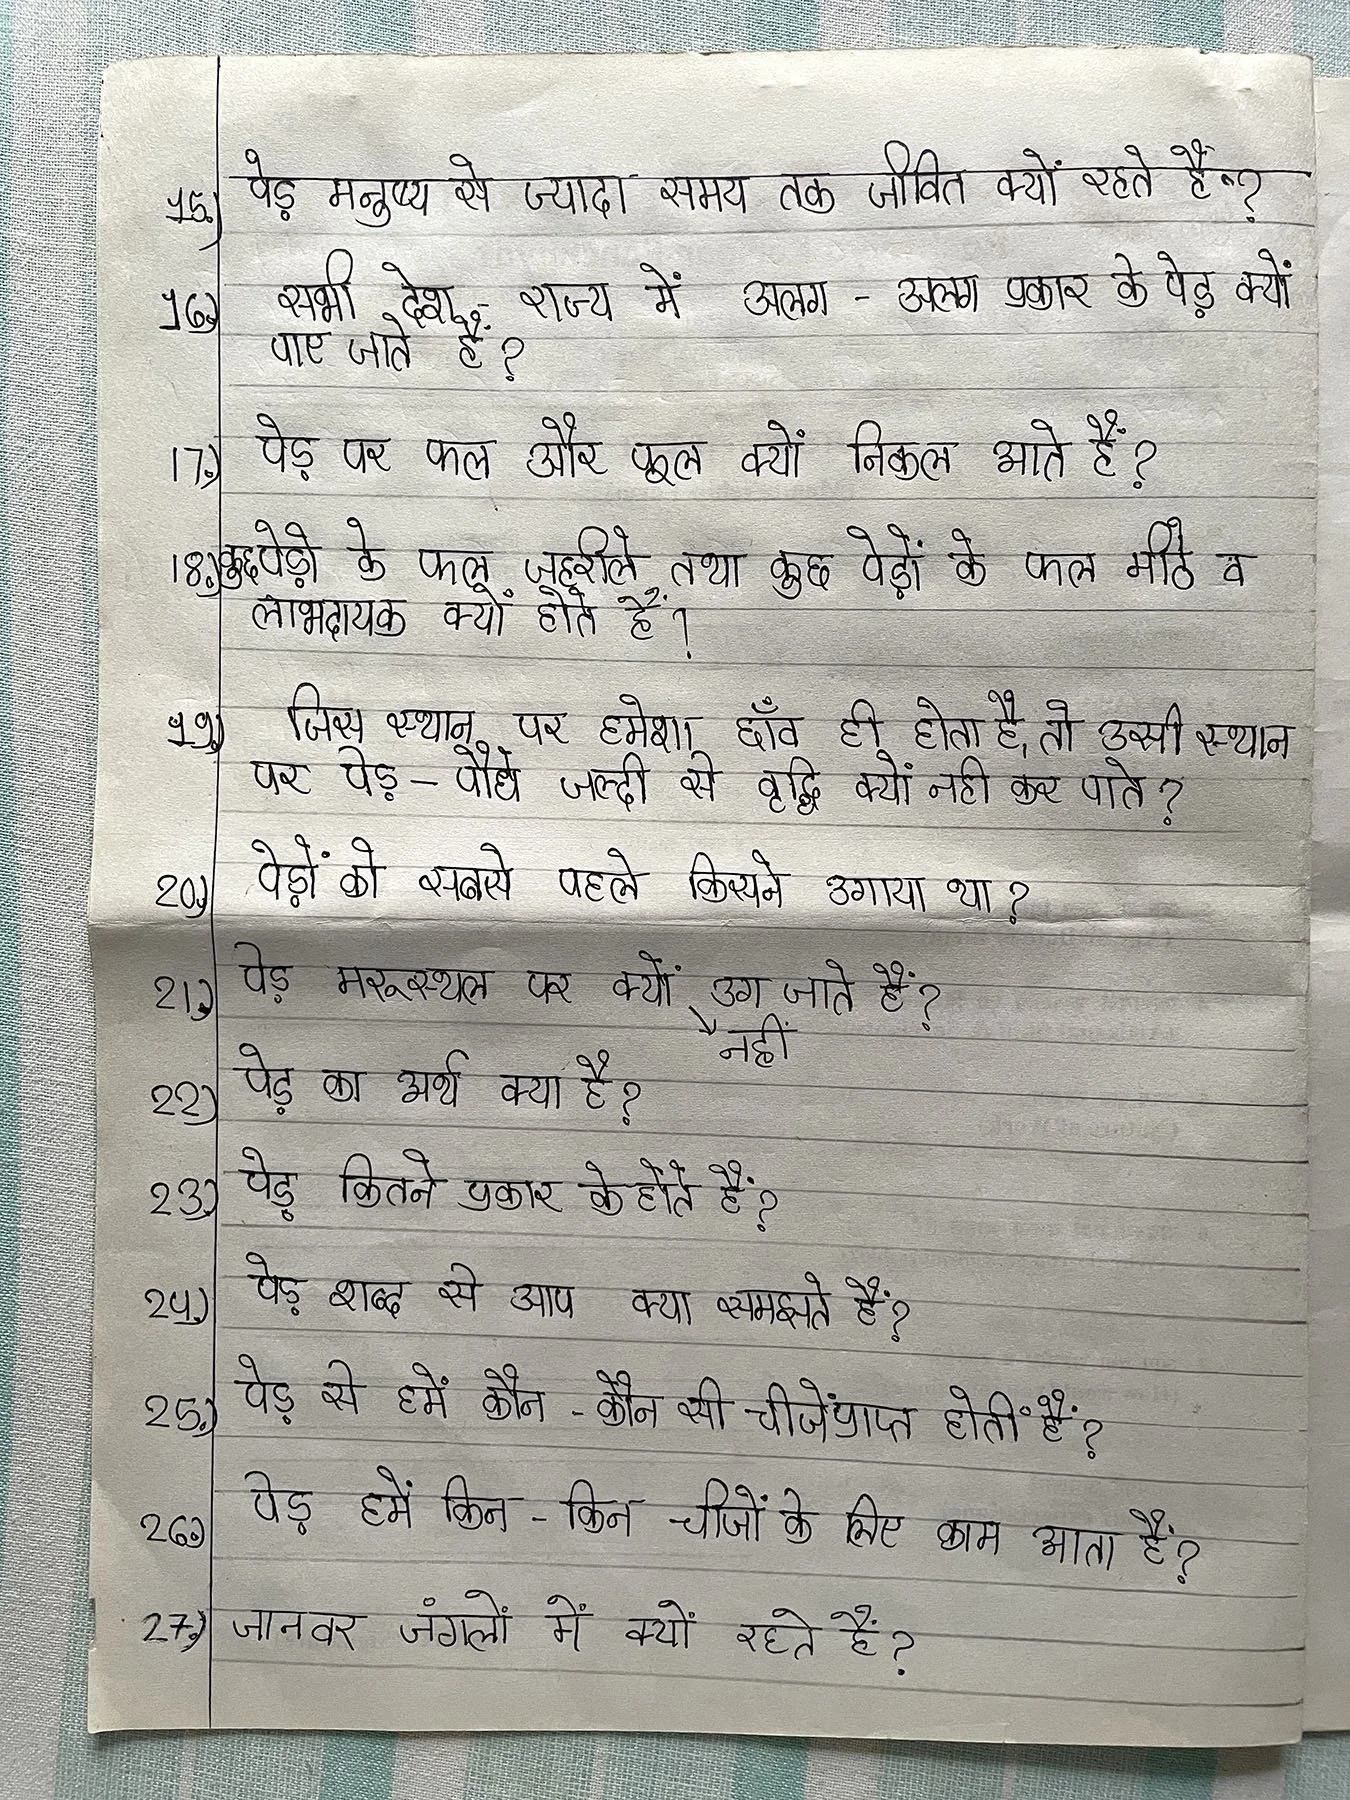 15.) पेड़ मनुष्य से ज्यादा समय तक जीवित क्यों रहते हैं?
16.) सभी देश - राज्य में अलग - अलग प्रकार के पेड़ क्यों
पाए जाते हैं?
17.) पेड़ पर फल और फूल क्यों निकल आते हैं?
18.) कुछ पेड़ो के फल जहरीले तथा कुछ पेड़ों के फल मीठे व
लाभदायक क्यों होते हैं?
19.) जिस स्थान पर हमेशा छाँव ही होता है, तो उसी स्थान
पर पेड़ - पौधे जल्दी से वृद्धि क्यों नही कर पाते?
20.) पेड़ों को सबसे पहले किसने उगाया था?
21.) पेड़ मरूस्थल पर क्यों उग जाते हैं?
नहीं
22.) पेड़ का अर्थ क्या है?
23.) पेड़ कितने प्रकार के होते हैं?
24.) पेड़ शब्द से आप क्या समझते हैं?
25.) पेड़ से हमें कौन - कौन सी चीजें प्राप्त होतीं हैं?
26.) पेड़ हमें किन - किन चीजों के लिए काम आता हैं?
27.) जानवर जंगलों में क्यों रहते हैं?